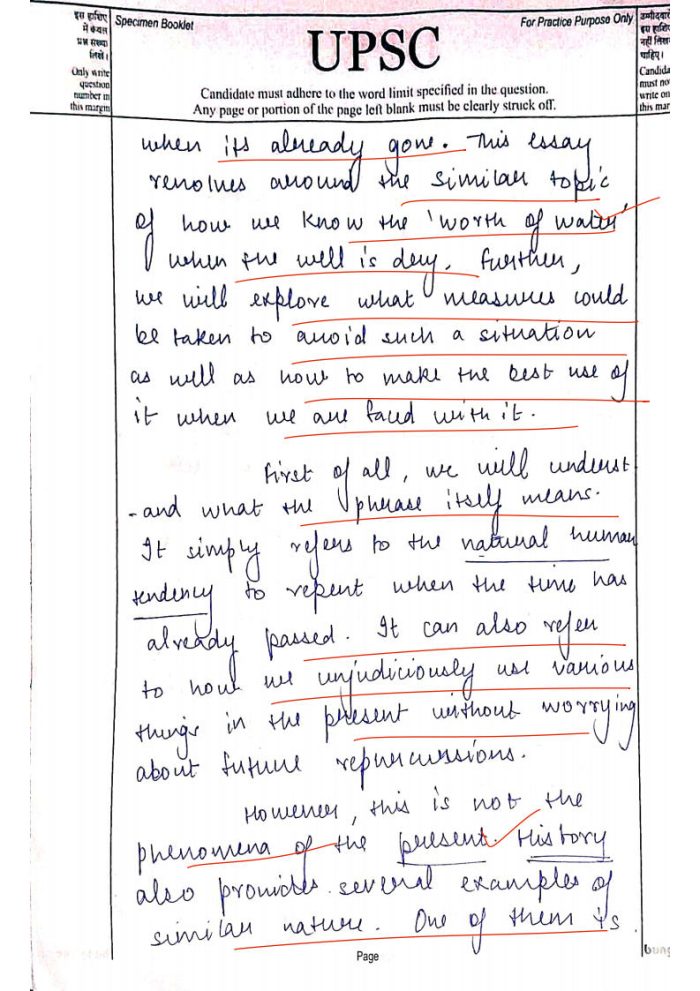 इस हाशिए
में केवल
प्रश्न संख्या
लिखें।
Only write
question
number in
this margin
Specimen Booklet
For Practice Purpose Only
UPSC
Candidate must adhere to the word limit specified in the question.
Any page or portion of the page left blank must be clearly struck off.
उम्मीदवारों
इस हाशिए
नहीं लिखना
चाहिए।
Candida
must no
write on
this mar
when its already gone. This essay
revolves around the similar topic
of how we know the 'worth of water'
when the well is dry. Further,
we will explore what measures could
be taken to avoid such a situation
as well as how to make the best use of
it when we are faced with it.
First of all, we will underst
-and what the phrase itself means.
It simply refers to the natural human
tendency to repent when the time has
already passed. It can also refer
to how we unjudiciously use various
things in the present without worrying
about future repurcussions.
However, this is not the
phenomena of the present. History
also provides several examples of
similar nature. One of them is
Page